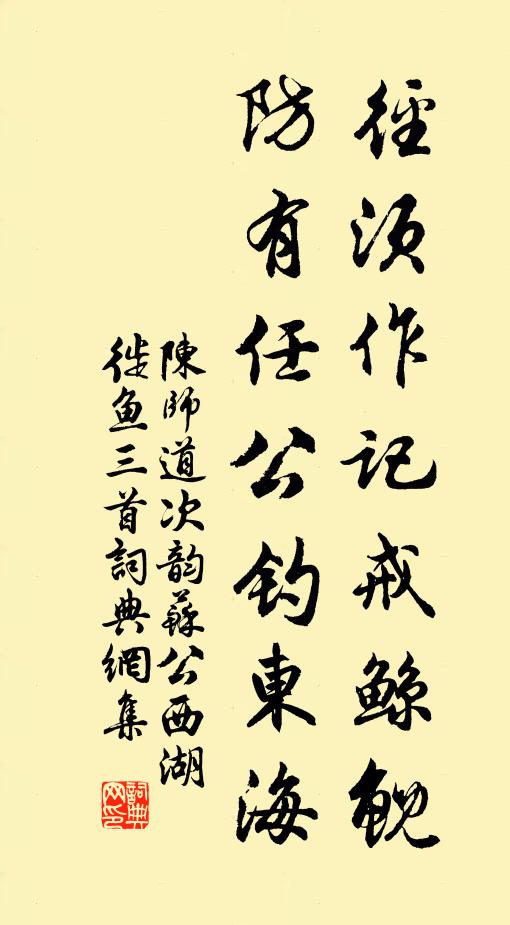 徑須作記戒鯨鯢
防有任公釣東海
陳師道次韵蘇公西湖
徙魚三首詞典網集
詞典
网印